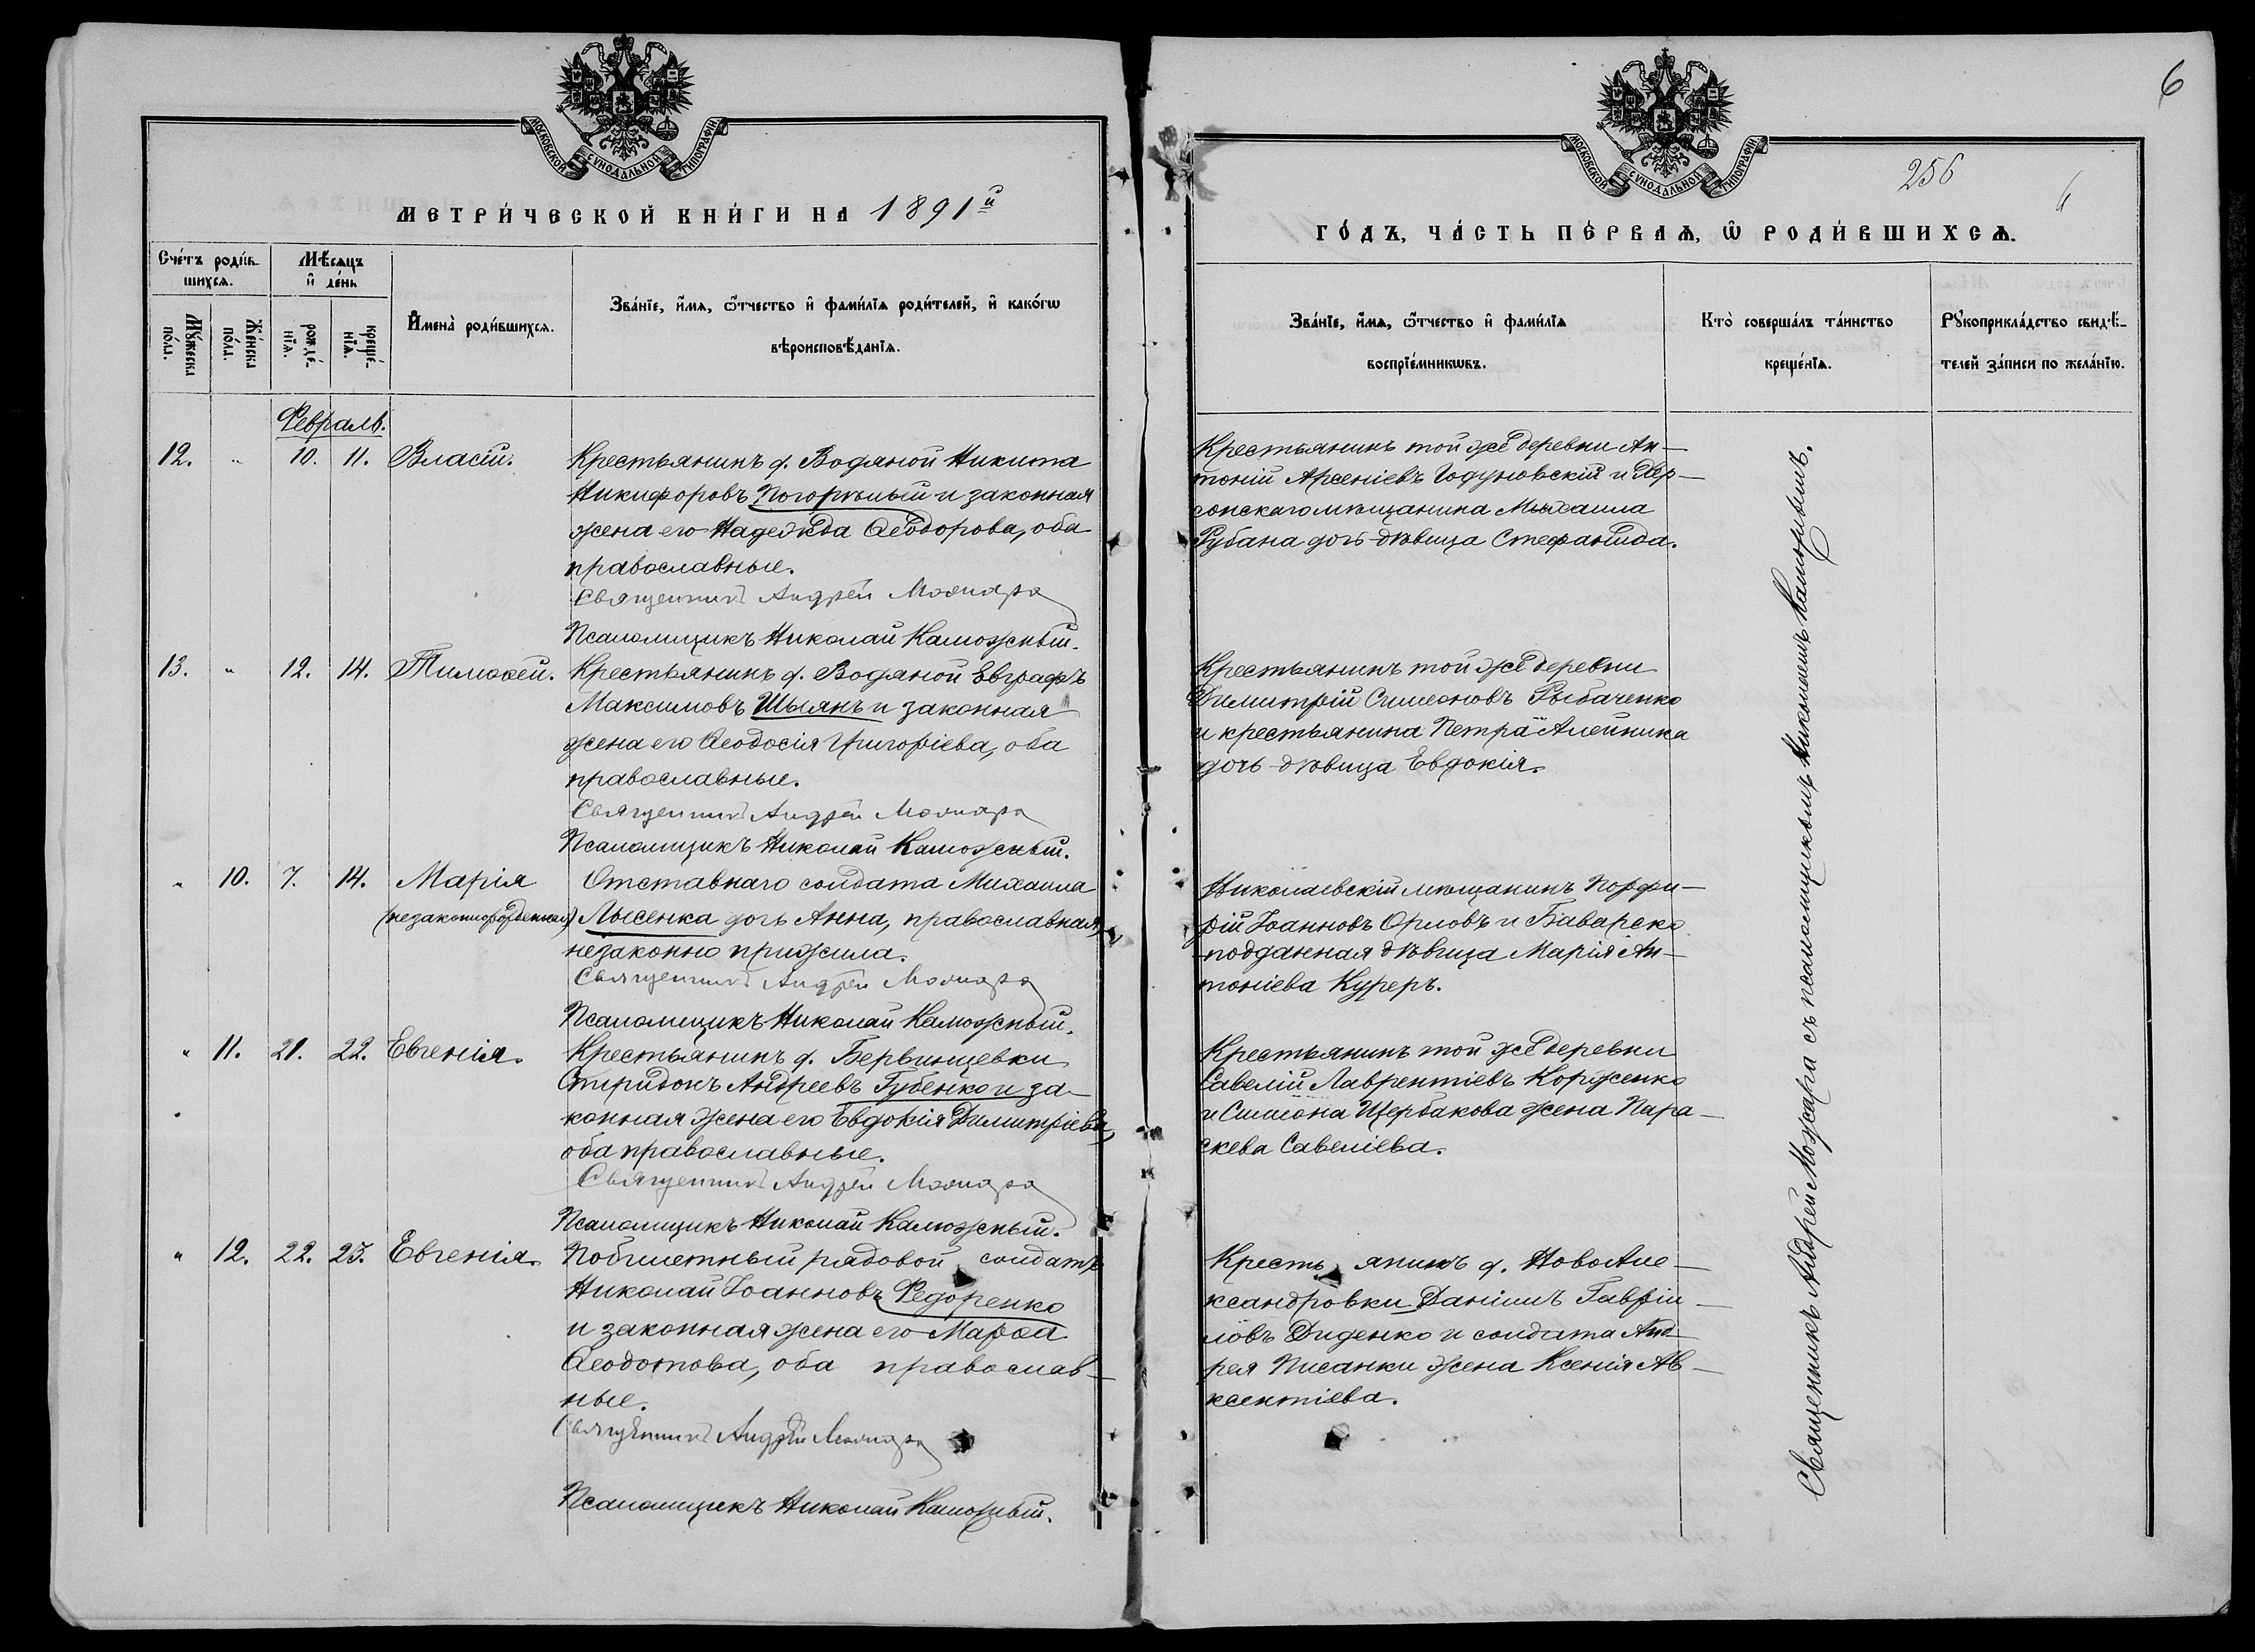 МОСКОВСКОЙ СѴНОДАЛЬНОЙ ТИПОГРАФІИ
МЕТРИ́ЧЕСКОЙ КНИ́ГИ НА 1891й
Сче́тъ роди́в-
шихся.
Мѣ́сяцъ
и҆ де́нь
Му́жеска
по́лъ.
Же́нска
по́лъ.
рожде́-
нїѧ.
креще́-
нїѧ.
И҆мена̀ роди́вшихсѧ.
Зва́нїе, и҆́мѧ, ѻ҆́тчество и҆ фами́лїѧ роди́телей, и҆ како́гѡ
вѣроисповѣ́данїѧ.
Февраль.
12. " 10. 11. Власій. Крестьянинъ д. Водяной Никита
Никифоровъ Погорѣлый и законная
жена его Надежда Ѳеодорова, оба
православные.
Священникъ Андрей Можара
Псаломщикъ Николай Каможный.
13. " 12. 14. Тимоѳей. Крестьянинъ д. Водяной Евграфъ
Максимовъ Шыянъ и законная
жена его Ѳеодосія Григоріева, оба
православные.
Священникъ Андрей Можара
Псаломщикъ Николай Каможный.
" 10. 7. 14. Марія Отставнаго солдата Михаила
(незаконнорожденная) Лысенка дочь Анна, православная,
незаконно прижила.
Священникъ Андрей Можара
Псаломщикъ Николай Каможный.
" 11. 21. 22. Евгенія. Крестьянинъ д.
Спиридонъ Андреевъ Губенко и за-
конная жена его Евдокія Димитріева,
оба православные.
Священникъ Андрей Можара
Псаломщикъ Николай Каможный.
" 12. 22. 23. Евгенія. рядовой солдатъ
Николай Іоанновъ Федоренко
и законная жена его Марѳа
Ѳеодотова, оба православ-
ные.
Священникъ Андрей Можара
Псаломщикъ Николай Каможный.
6
МОСКОВСКОЙ СѴНОДАЛЬНОЙ ТИПОГРАФІИ
256
6
ГО́ДЪ, ЧА́СТЬ ПЕ́РВАѦ, Ѡ҆ РОДИ́ВШИХСѦ.
Зва́нїе, и҆́мѧ, ѻ҆́тчество и҆ фами́лїѧ
воспрїе́мникѡвъ.
Кто̀ соверша́лъ та́инство
креще́нїѧ.
Рꙋкоприкла́дство свидѣ́-
телей за́писи по жела́нїю.
Крестьянинъ той же деревни Ан-
тоній Арсеніевъ Годуновскій и Хер-
сонскаго мѣщанина Михаила
Рубана дочь-дѣвица Стефанида.
Крестьянинъ той же деревни
Димитрій Симеоновъ Рыбаченко
и крестьянина Петра Алейника
дочь-дѣвица Евдокія.
Николаевскій мѣщанинъ Порфи-
рій Іоанновъ Орловъ и Баварско
-подданная дѣвица Марія Ан-
тоніева Куреръ.
Крестьянинъ той же деревни
Савелій Лаврентіевъ Корженко
и Симеона Щербакова жена Пара-
скева Савеліева.
Крестьянинъ д. НовоАле-
ксандровки Даніилъ Гавріи-
ловъ Диденко и солдата Анд-
рея Писанки жена Ксенія Ав-
ксентіева.
Священникъ Андрей Можара съ псаломщикомъ Николаемъ Каможнымъ.